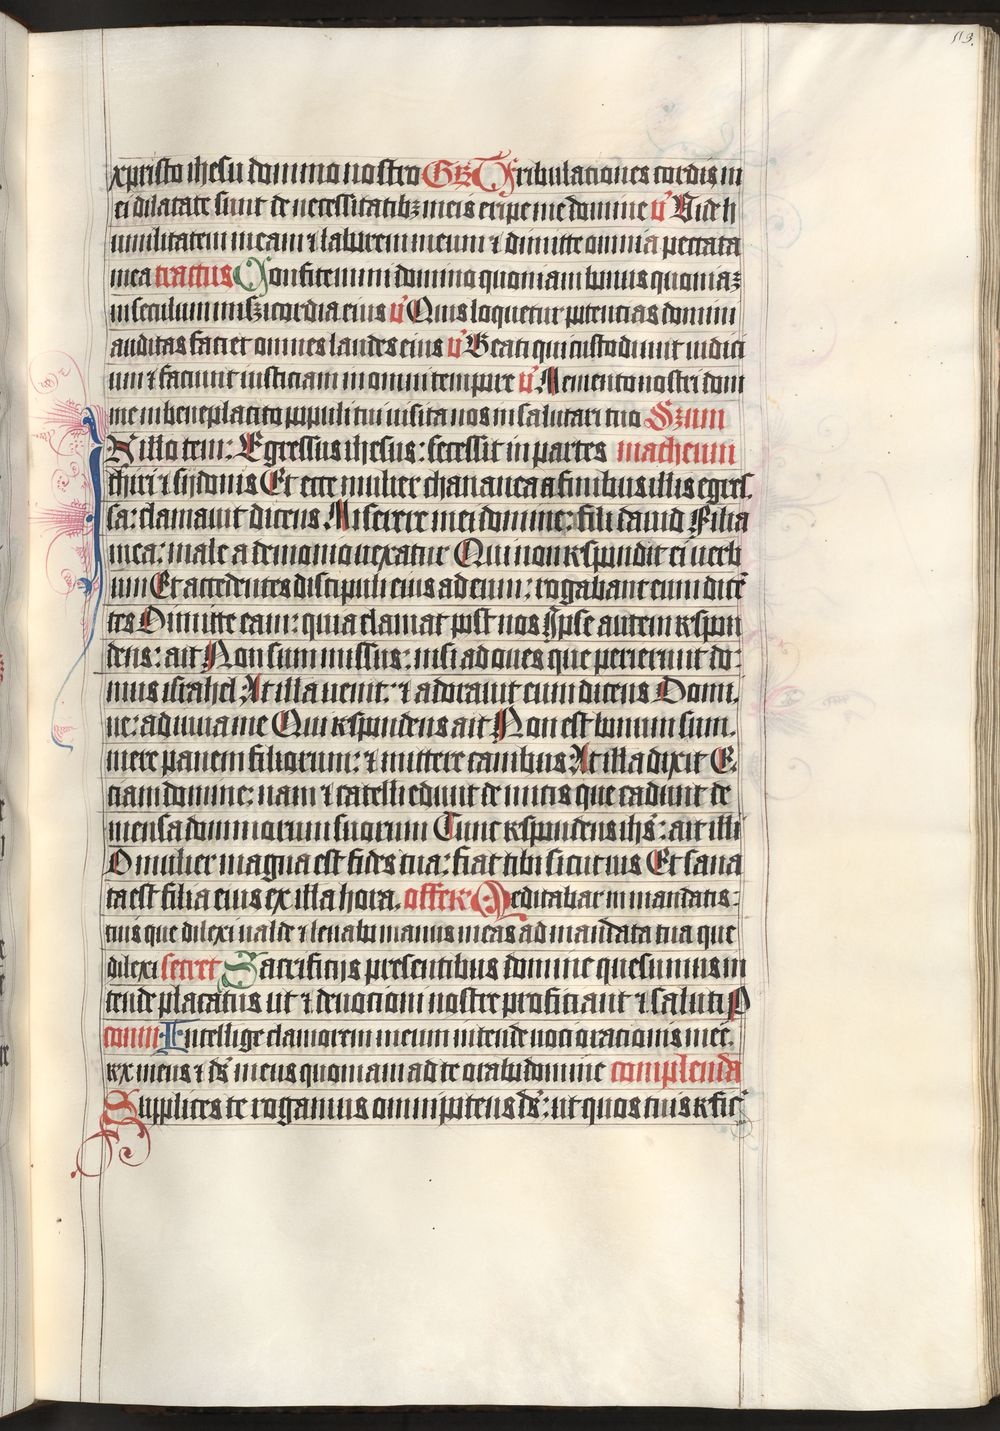 113.
xpristo ihesu domino nostro Gr Tribulationes cordis m
ei dilatate sunt de necessitatibꝫ meis eripe me domine v̓ Vide h
umilitatem meam ⁊ laborem meum ⁊ dimitte omnia peccata
mea tractus Confitemini domino quoniam bonus quoniaꝫ
in seculum misericordia eius v̓ Quis loquetur potencias domini
auditas faciet omnes laudes eius v̓ Beati qui custodiunt iudici
um ⁊ faciunt iusticiam in omni tempore v̓ Memento nostri dom
ine in beneplacito populi tui visita nos in salutari tuo Sꝫum
N illo tem: Egressus ihesus: secessit in partes matheum
thiri ⁊ sydonis Et ecce mulier chananea a finibus illis egres,
sa: clamavit dicens Miserere mei domine: fili david Filia
mea: male a demonio vexatur Qui non respondit ei verb
um Et accedentes discipuli eius ad eum: rogabant eum dicē
tes Dimitte eam: quia clamat post nos Ipse autem respon
dens: ait Non sum missus: nisi ad oves que perierunt do-
mus israhel At illa venit: ⁊ adoravit eum dicens Domi,
ne: adiuva me Qui respondens ait Non est bonum sum,
mere panem filiorum: ⁊ mittere canibus: At illa dixit E,
ciam domine: nam ⁊ catelli edunt de micis que cadunt de
mensa dominorum suorum Tunc respondens ihs̄: ait illi
O mulier magna est fides tua: fiat tibi sicut vis Et sana
ta est filia eius ex illa hora. offer Meditabar in mandatis:
tuis que dilexi valde ⁊ levabo manus meas ad mandata tua que
dilexi secret Sacrificiis presentibus domine quesumus in
tende placatus ut ⁊ devocioni nostre proficiant ⁊ saluti P
comm Intellige clamorem meum intende voci oracionis mee,
rex meus ⁊ ds̄ meus quoniam ad te orabo domine complenda
Supplices te rogamus omnipotens ds̄: ut quos tuis refic